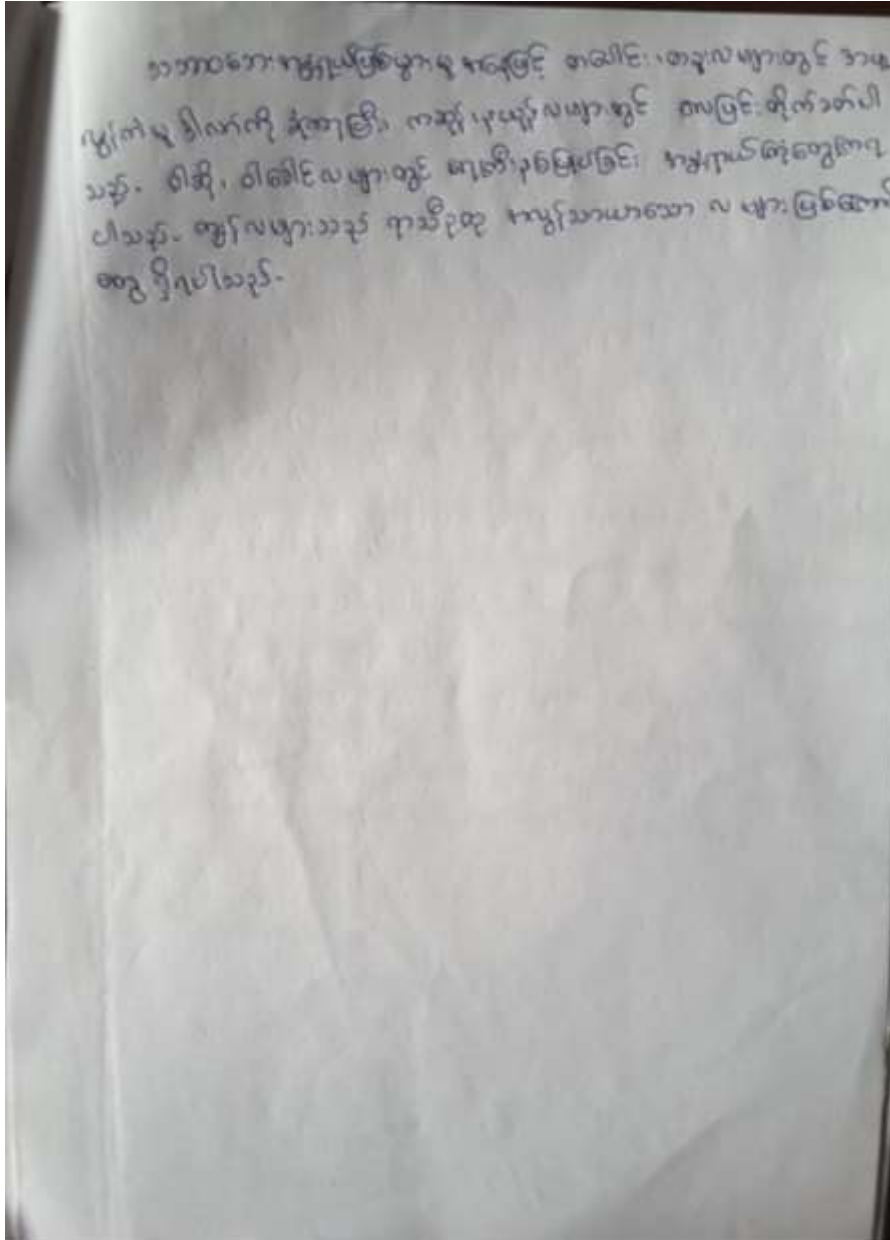 သဘာဝဘေးအန္တရာယ်ဖြစ်ပွားမှု အနေဖြင့် တပေါင်း၊ တန်းလများတွင် အပူ
လွန်ကဲမှု ဒါဏ်ကို ခံရတာမြို့၊ ကဆုန်၊ နယုန်လများတွင် လေပြင်းတိုက်ခတ်ပါ
သည်. ဝါဆို၊ ဝါခေါင်လများတွင် ရေကြီးခြင်း အန္တရာယ်ကြုံတွေ့ရ
ပါသည်. ကျန်လများသည် ရာသီဥတု အလွန်သာယာသော လ များဖြစ်ကြောင်း
တွေ့ ရှိရပါသည်.